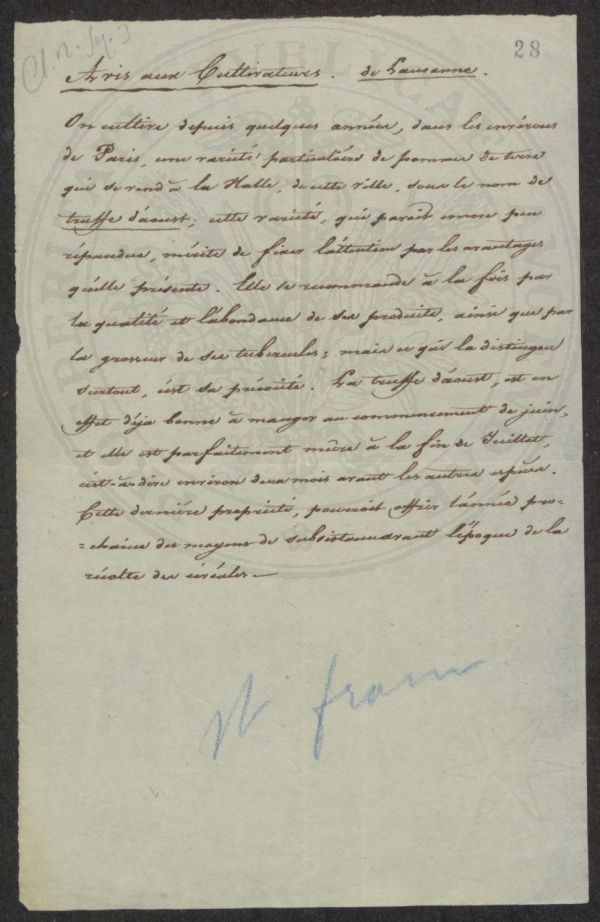 28
Avis aux Cultivateurs. de Lausanne.
On cultive depuis quelques années, dans les environs
de Paris, une variété particulière de pommes de terre
qui se vend à la Halle, de cette ville, sous le nom de
truffe d'aoust; cette variété, qui parait encore peu
répandue, mérite de fixer l'attention par les avantages
qu'elle présente. Elle se recommande à la fois par
la qualité et l'abondance de ses produits, ainsi que par
la grosseur de ses tubercules; mais ce qui la distingue
surtout, c'est sa précocité. La truffe d'aoust, est en
effet déja bonne à manger au commencement de juin,
et elle est parfaitement mûre à la fin de Juillet,
c'est-à-dire environ deux mois avant les autres espèces.
Cette dernière propriété, pourroit offrir l'année pro=
=chaine des moyens de subsistance avant l'époque de la
récolte des céréales.—